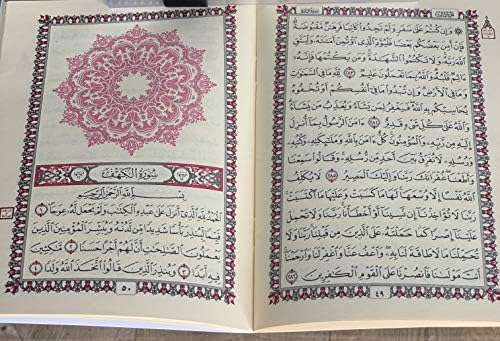 ۞ وَإِن كُنتُمْ عَلَىٰ سَفَرٍ وَلَمْ تَجِدُوا۟ كَاتِبًا فَرِهَـٰنٌ مَّقْبُوضَةٌ
فَإِنْ أَمِنَ بَعْضُكُم بَعْضًا فَلْيُؤَدِّ ٱلَّذِى ٱؤْتُمِنَ أَمَـٰنَتَهُۥ وَلْيَتَّقِ
ٱللَّهَ رَبَّهُۥ وَلَا تَكْتُمُوا۟ ٱلشَّهَـٰدَةَ وَمَن يَكْتُمْهَا فَإِنَّهُۥٓ
ءَاثِمٌ قَلْبُهُۥ وَٱللَّهُ بِمَا تَعْمَلُونَ عَلِيمٌ ٢٨٣ لِّلَّهِ مَا فِى ٱلسَّمَـٰوَٰتِ
وَمَا فِى ٱلْأَرْضِ وَإِن تُبْدُوا۟ مَا فِىٓ أَنفُسِكُمْ أَوْ تُخْفُوهُ
يُحَاسِبْكُم بِهِ ٱللَّهُ فَيَغْفِرُ لِمَن يَشَآءُ وَيُعَذِّبُ مَن يَشَآءُ
وَٱللَّهُ عَلَىٰ كُلِّ شَىْءٍ قَدِيرٌ ٢٨٤ ءَامَنَ ٱلرَّسُولُ بِمَآ أُنزِلَ
إِلَيْهِ مِن رَّبِّهِۦ وَٱلْمُؤْمِنُونَ كُلٌّ ءَامَنَ بِٱللَّهِ وَمَلَـٰٓئِكَتِهِۦ وَكُتُبِهِۦ
وَرُسُلِهِۦ لَا نُفَرِّقُ بَيْنَ أَحَدٍ مِّن رُّسُلِهِۦ وَقَالُوا۟ سَمِعْنَا
وَأَطَعْنَا غُفْرَانَكَ رَبَّنَا وَإِلَيْكَ ٱلْمَصِيرُ ٢٨٥ لَا يُكَلِّفُ
ٱللَّهُ نَفْسًا إِلَّا وُسْعَهَا لَهَا مَا كَسَبَتْ وَعَلَيْهَا مَا ٱكْتَسَبَتْ
رَبَّنَا لَا تُؤَاخِذْنَآ إِن نَّسِينَآ أَوْ أَخْطَأْنَا رَبَّنَا وَلَا تَحْمِلْ
عَلَيْنَآ إِصْرًا كَمَا حَمَلْتَهُۥ عَلَى ٱلَّذِينَ مِن قَبْلِنَا رَبَّنَا وَلَا
تُحَمِّلْنَا مَا لَا طَاقَةَ لَنَا بِهِۦ وَٱعْفُ عَنَّا وَٱغْفِرْ لَنَا وَٱرْحَمْنَآ
أَنتَ مَوْلَىٰنَا فَٱنصُرْنَا عَلَى ٱلْقَوْمِ ٱلْكَـٰفِرِينَ ٢٨٦
٤٩
سُورَةُ ٱلْكَهْفِ
بِسْمِ ٱللَّهِ ٱلرَّحْمَـٰنِ ٱلرَّحِيمِ
ٱلْحَمْدُ لِلَّهِ ٱلَّذِىٓ أَنزَلَ عَلَىٰ عَبْدِهِ ٱلْكِتَـٰبَ وَلَمْ يَجْعَل لَّهُۥ عِوَجَا ١
قَيِّمًا لِّيُنذِرَ بَأْسًا شَدِيدًا مِّن لَّدُنْهُ وَيُبَشِّرَ ٱلْمُؤْمِنِينَ ٱلَّذِينَ
يَعْمَلُونَ ٱلصَّـٰلِحَـٰتِ أَنَّ لَهُمْ أَجْرًا حَسَنًا ٢ مَّـٰكِثِينَ
فِيهِ أَبَدًا ٣ وَيُنذِرَ ٱلَّذِينَ قَالُوا۟ ٱتَّخَذَ ٱللَّهُ وَلَدًا ٤
٥٠